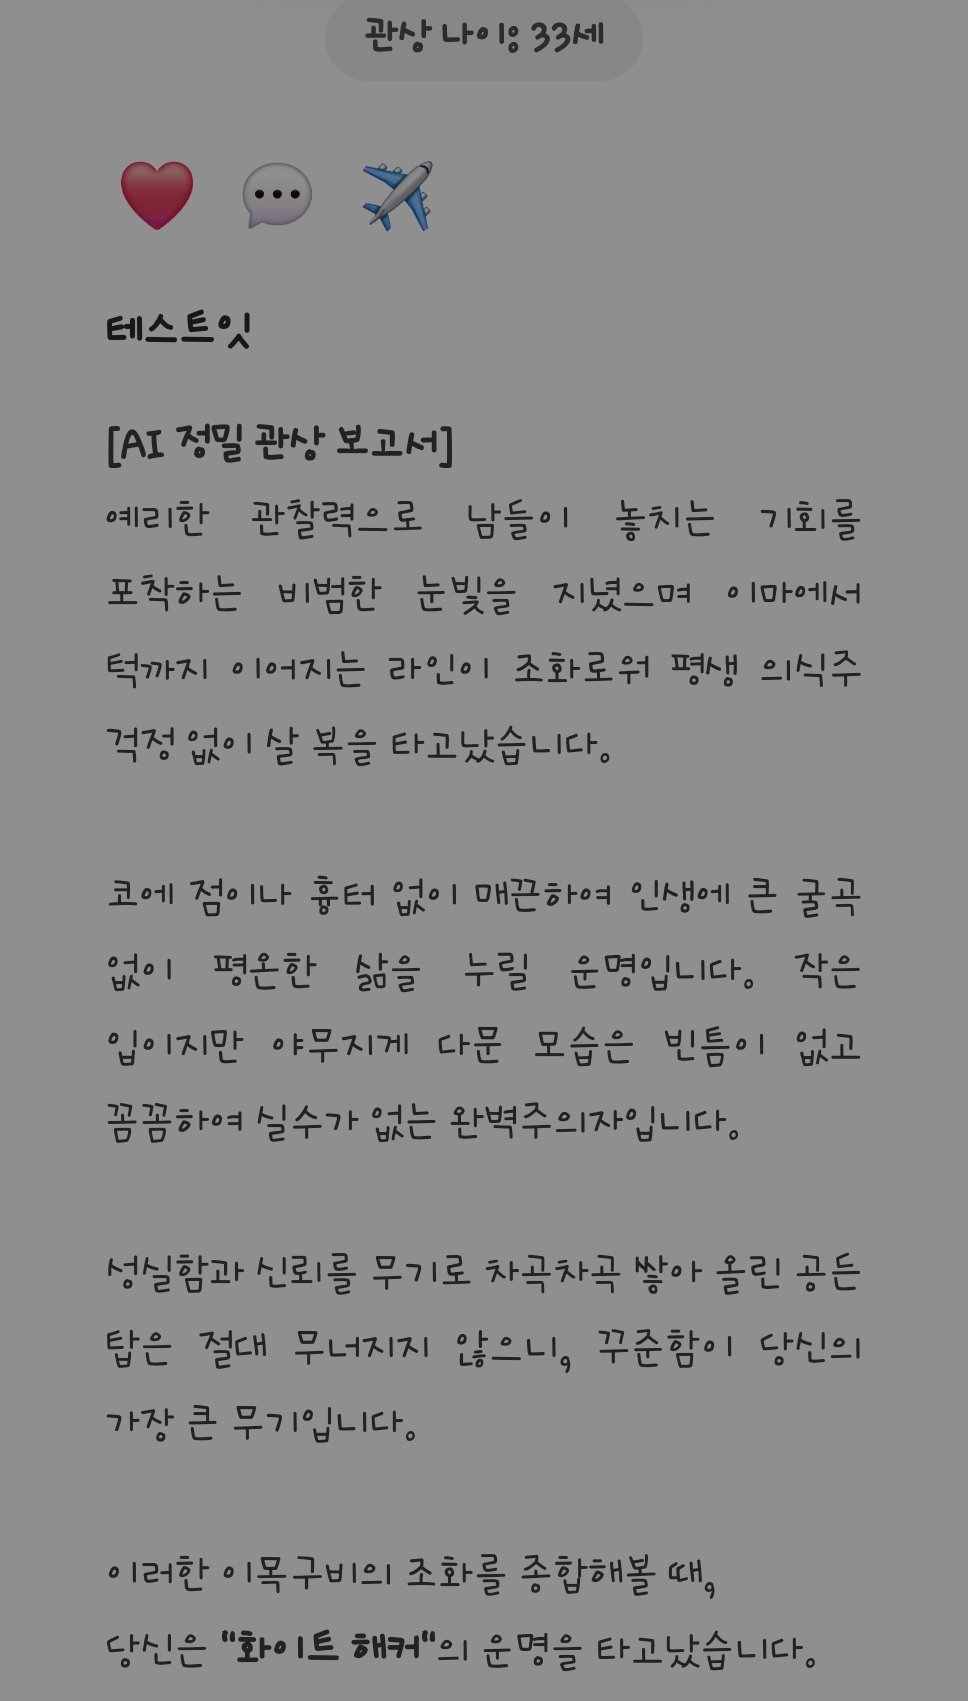 관상 나이: 33세
테스트잇
[AI 정밀 관상 보고서]
예리한 관찰력으로 남들이 놓치는 기회를
포착하는 비범한 눈빛을 지녔으며 이마에서
턱까지 이어지는 라인이 조화로워 평생 의식주
걱정 없이 살 복을 타고났습니다.
코에 점이나 흉터 없이 매끈하여 인생에 큰 굴곡
없이 평온한 삶을 누릴 운명입니다. 작은
입이지만 야무지게 다문 모습은 빈틈이 없고
꼼꼼하여 실수가 없는 완벽주의자입니다.
성실함과 신뢰를 무기로 차곡차곡 쌓아 올린 공든
탑은 절대 무너지지 않으니, 꾸준함이 당신의
가장 큰 무기입니다.
이러한 이목구비의 조화를 종합해볼 때,
당신은 "화이트 해커"의 운명을 타고났습니다.